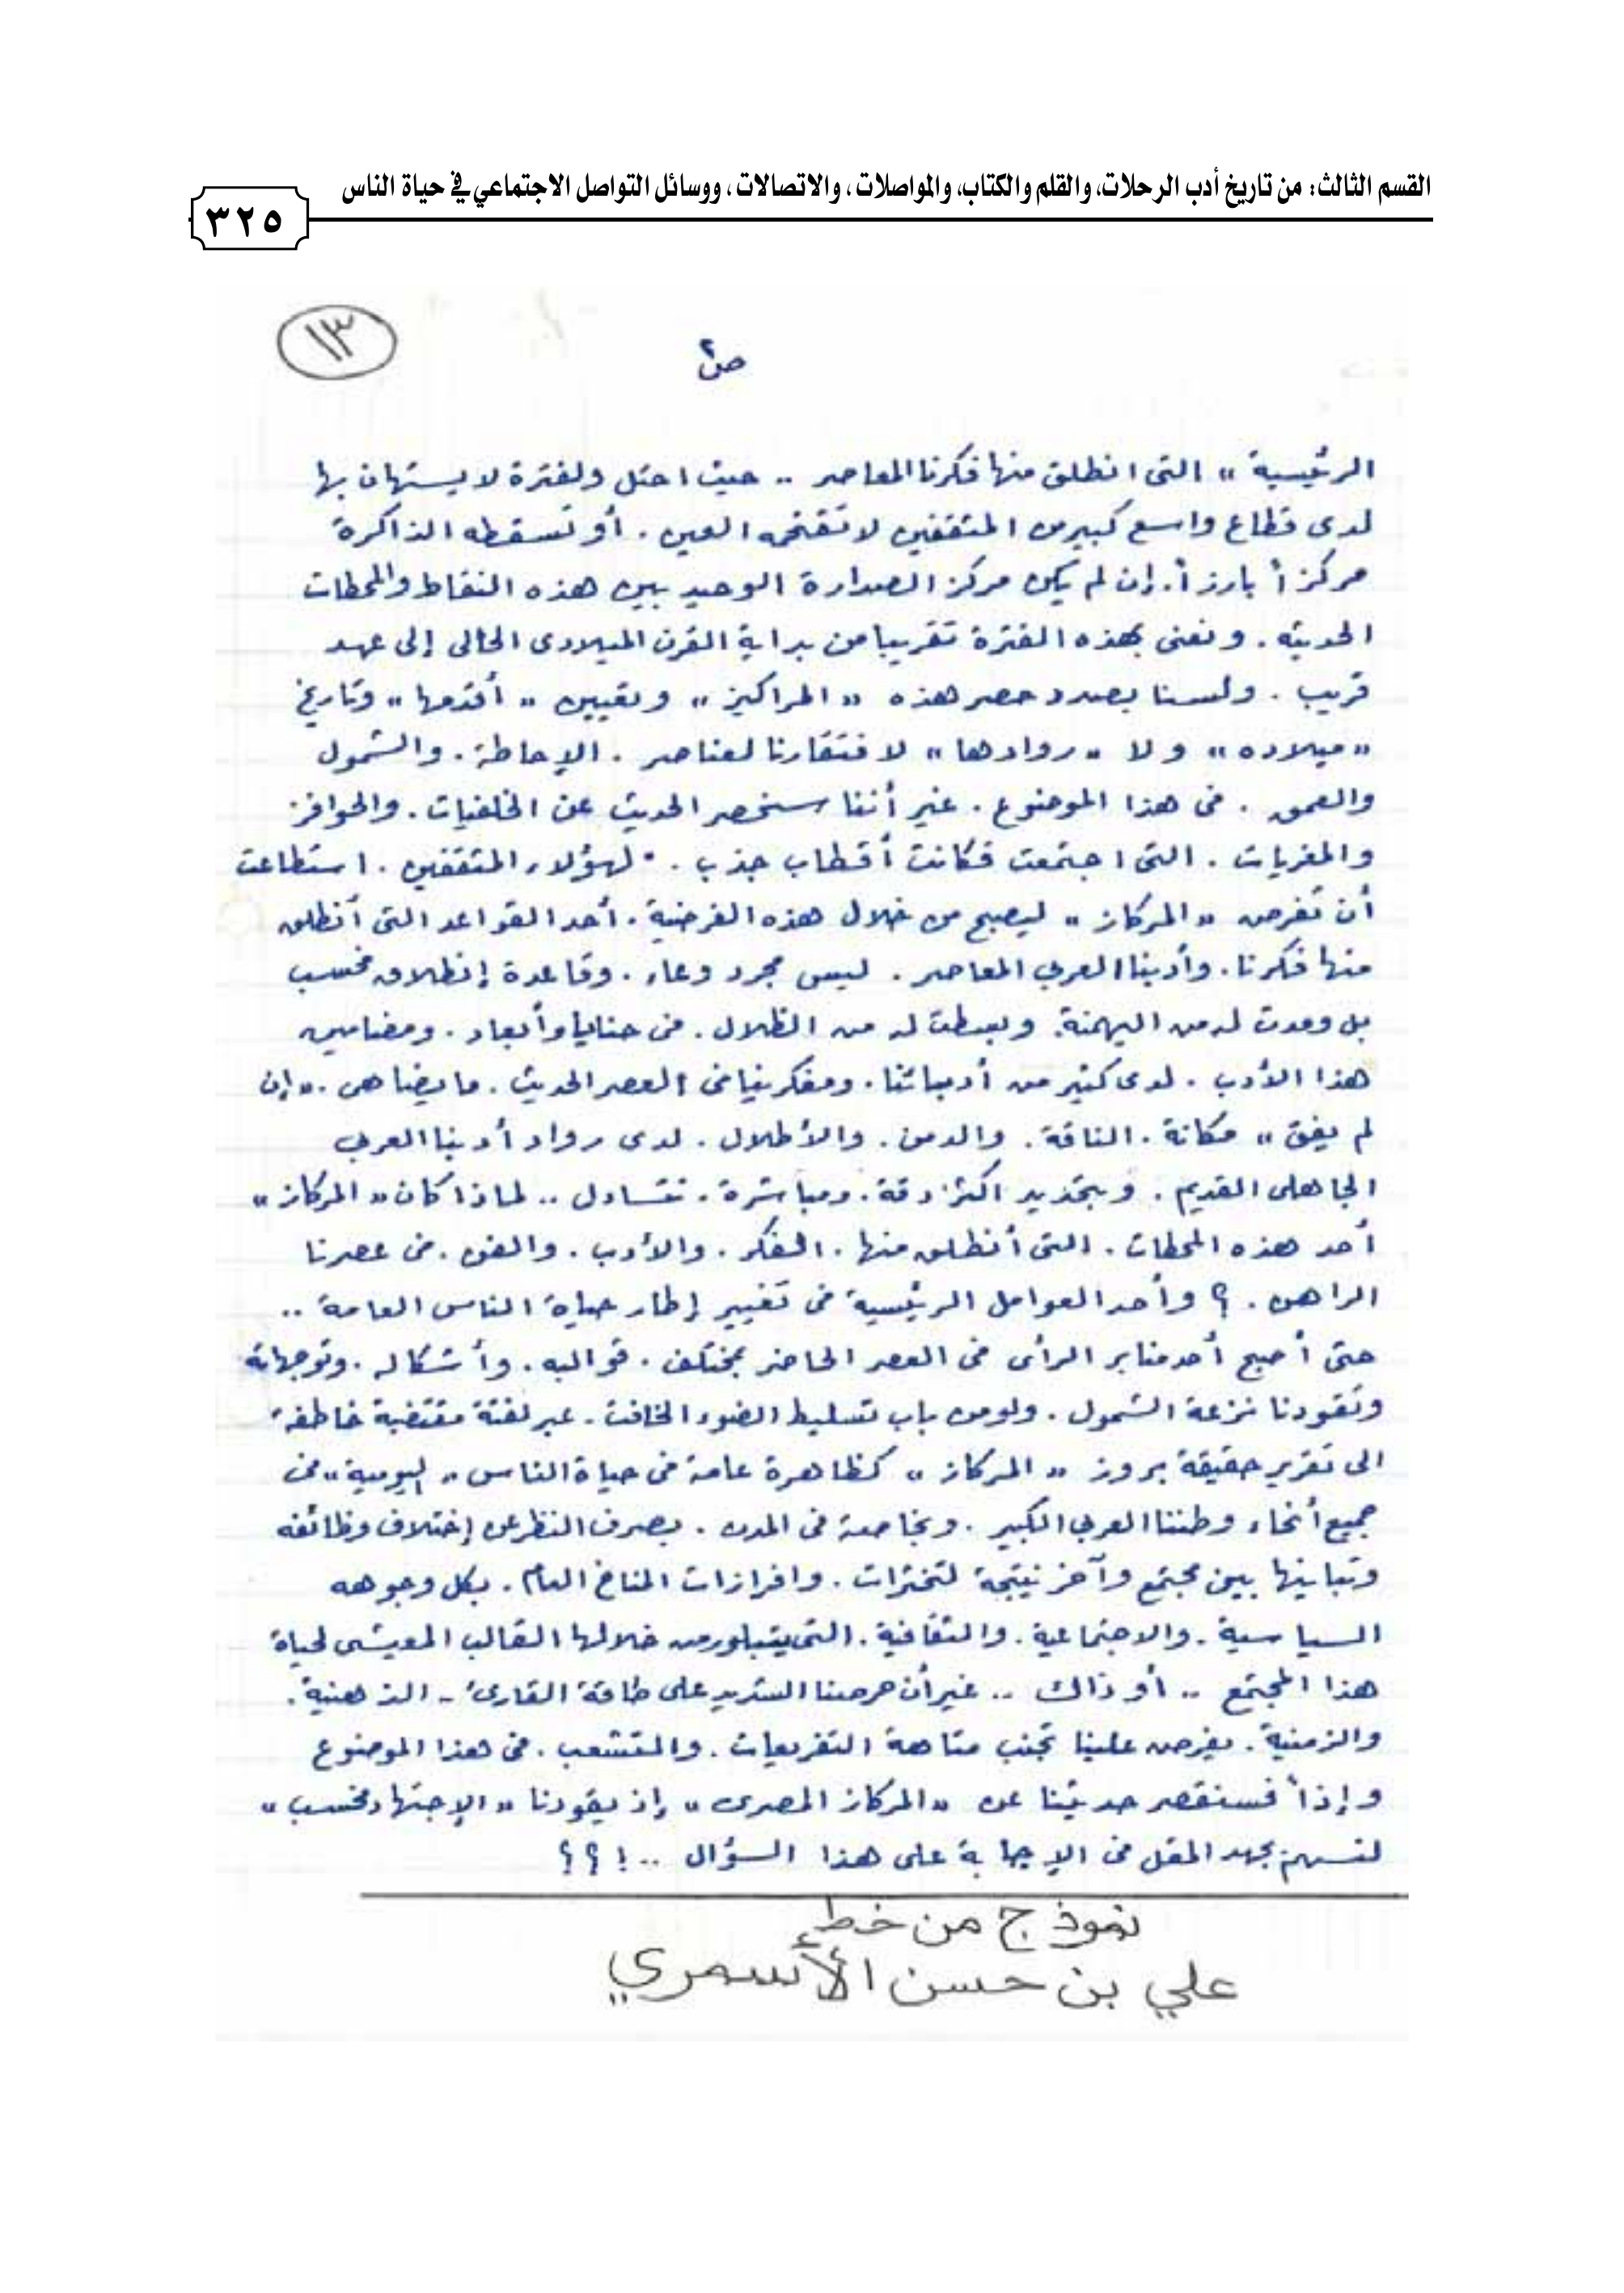 القسم الثالث: من تاريخ أدب الرحلات، والقلم والكتاب، والمواصلات، والاتصالات، ووسائل التواصل الاجتماعي في حياة الناس
٣٢٥
١٣
ص٢
الرئيسية» التى انطلق منها فكرنا المعاصر .. حيث احتل ولفترة لا يستهان بها
لدى قطاع واسع كبير من المثقفين لا تقتحمه العين . أو تسقطه الذاكرة
مركزاً بارزاً. إن لم يكن مركز الصدارة الوحيد بين هذه النقاط والمحطات
الحديثه . ونعنى بهذه الفترة تقريبا من بداية القرن الميلادى الحالى إلى عهد
قريب . ولسنا بصدد حصر هذه «المراكيز» وتعيين «أقدمها» وتاريخ
«ميلاده» ولا «روادها» لافتقارنا لعناصر . الإحاطة . والشمول
والعمق . فى هذا الموضوع . غير أننا سنحصر الحديث عن الخلفيات . والحوافز
والمغريات . التى اجتمعت فكانت أقطاب جذب . لهؤلاء المثقفين . استطاعت
أن تفرض «المركاز» ليصبح من خلال هذه الفرضية . أحد القواعد التى أنطلق
منها فكرنا . وأدبنا العربي المعاصر . ليس مجرد وعاء . وقاعدة إنطلاق فحسب
بل ومدت له من الهيمنة . وبسطت له من الظلال . فى حنايا وأبعاد . ومضامين
هذا الأدب . لدى كثير من أدبائنا . ومفكرينا فى العصر الحديث . ما يضاهى . «إن
لم يفق» مكانة . الناقة . والدمن . والأطلال . لدى رواد أدبنا العربي
الجاهلى القديم . وبتحديد اكثر دقة . ومباشرة . نتساءل .. لماذا كان «المركاز»
أحد هذه المحطات . التى أنطلق منها . الفكر . والأدب . والفن . فى عصرنا
الراهن . ؟ وأحد العوامل الرئيسية فى تغيير إطار حياة الناس العامة ..
حتى أصبح أحد منابر الرأى فى العصر الحاضر بمختلف . قوالبه . وأشكاله . وتوجهاته
وتقودنا نزعة الشمول . ولو من باب تسليط الضوء الخافت . عبر لفتة مقتضبة خاطفة
الى تقرير حقيقة بروز «المركاز» كظاهرة عامة فى حياة الناس «اليومية» فى
جميع أنحاء وطننا العربي الكبير . وبخاصة فى المدن . بصرف النظر عن إختلاف وظائفه
وتباينها بين مجتمع وآخر نتيجة لتخثرات . وافرازات المناخ العام . بكل وجوهه
السياسية . والاجتماعية . والثقافية . التى يتبلور من خلالها القالب المعيشى لحياة
هذا المجتمع .. أو ذاك .. غير أن حرصنا الشديد على طاقة القارئ - الذهنية .
والزمنية . يفرض علينا تجنب متاهة التفريعات . والتشعب . فى هذا الموضوع
وإذاً فسنقصر حديثنا عن «المركاز المصرى» إذ يقودنا «الإجتهاد فحسب»
لنسهم بجهد المقل فى الإجابة على هذا السؤال ..!؟؟
نموذج من خط
علي بن حسن الأسمري